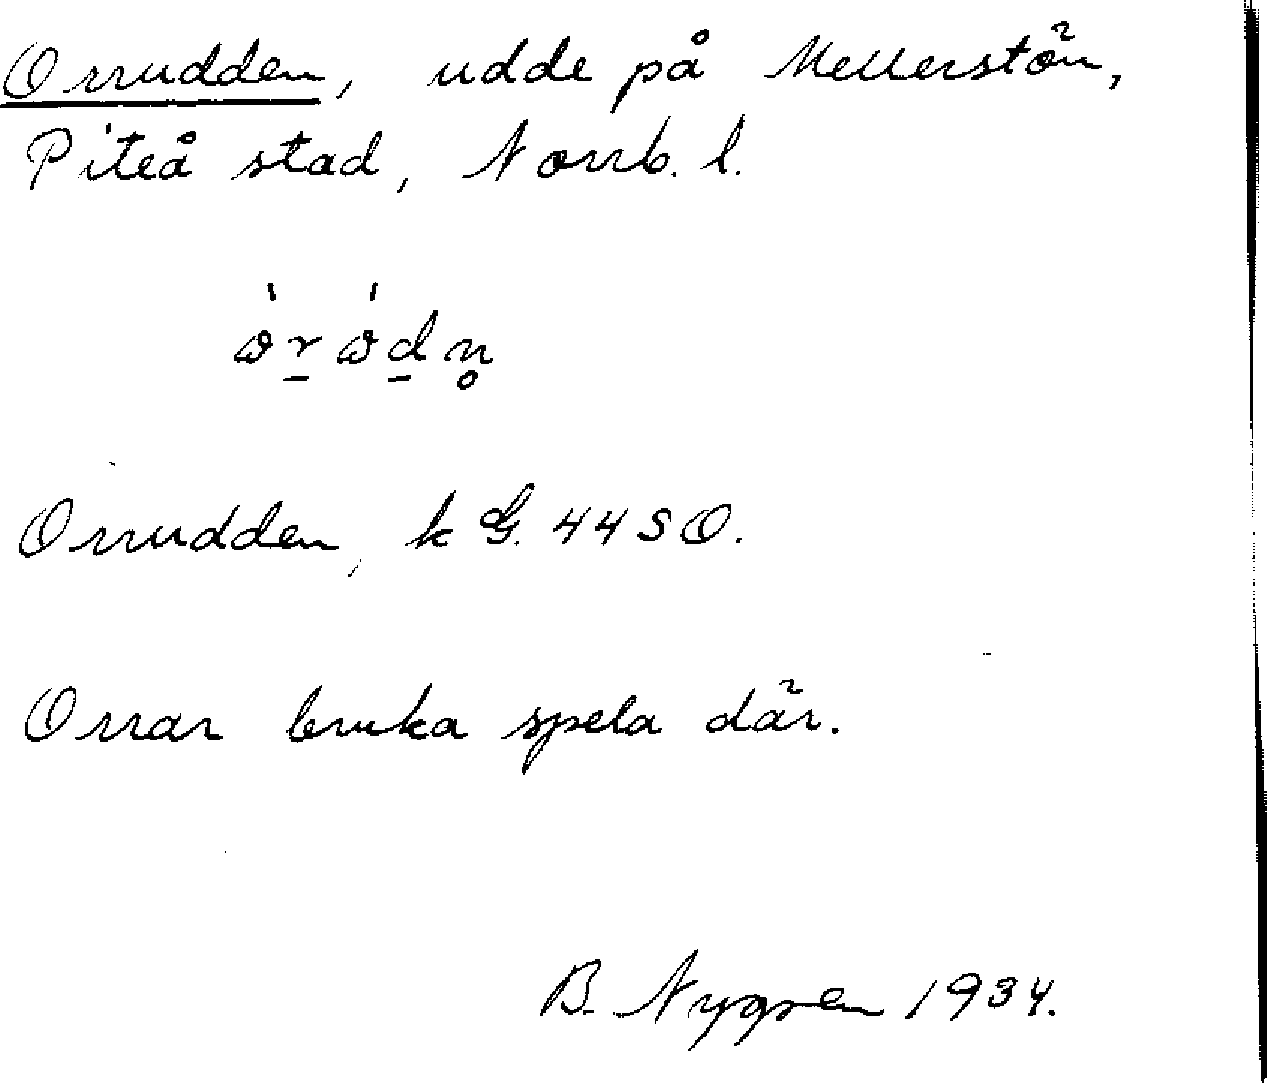 Orrudden, udde på Mellerstön,
Piteå stad, Norrb. l.
Orrudden, k G. 44 S O.
Orrar bruka spela där.
B. Nygren 1934.